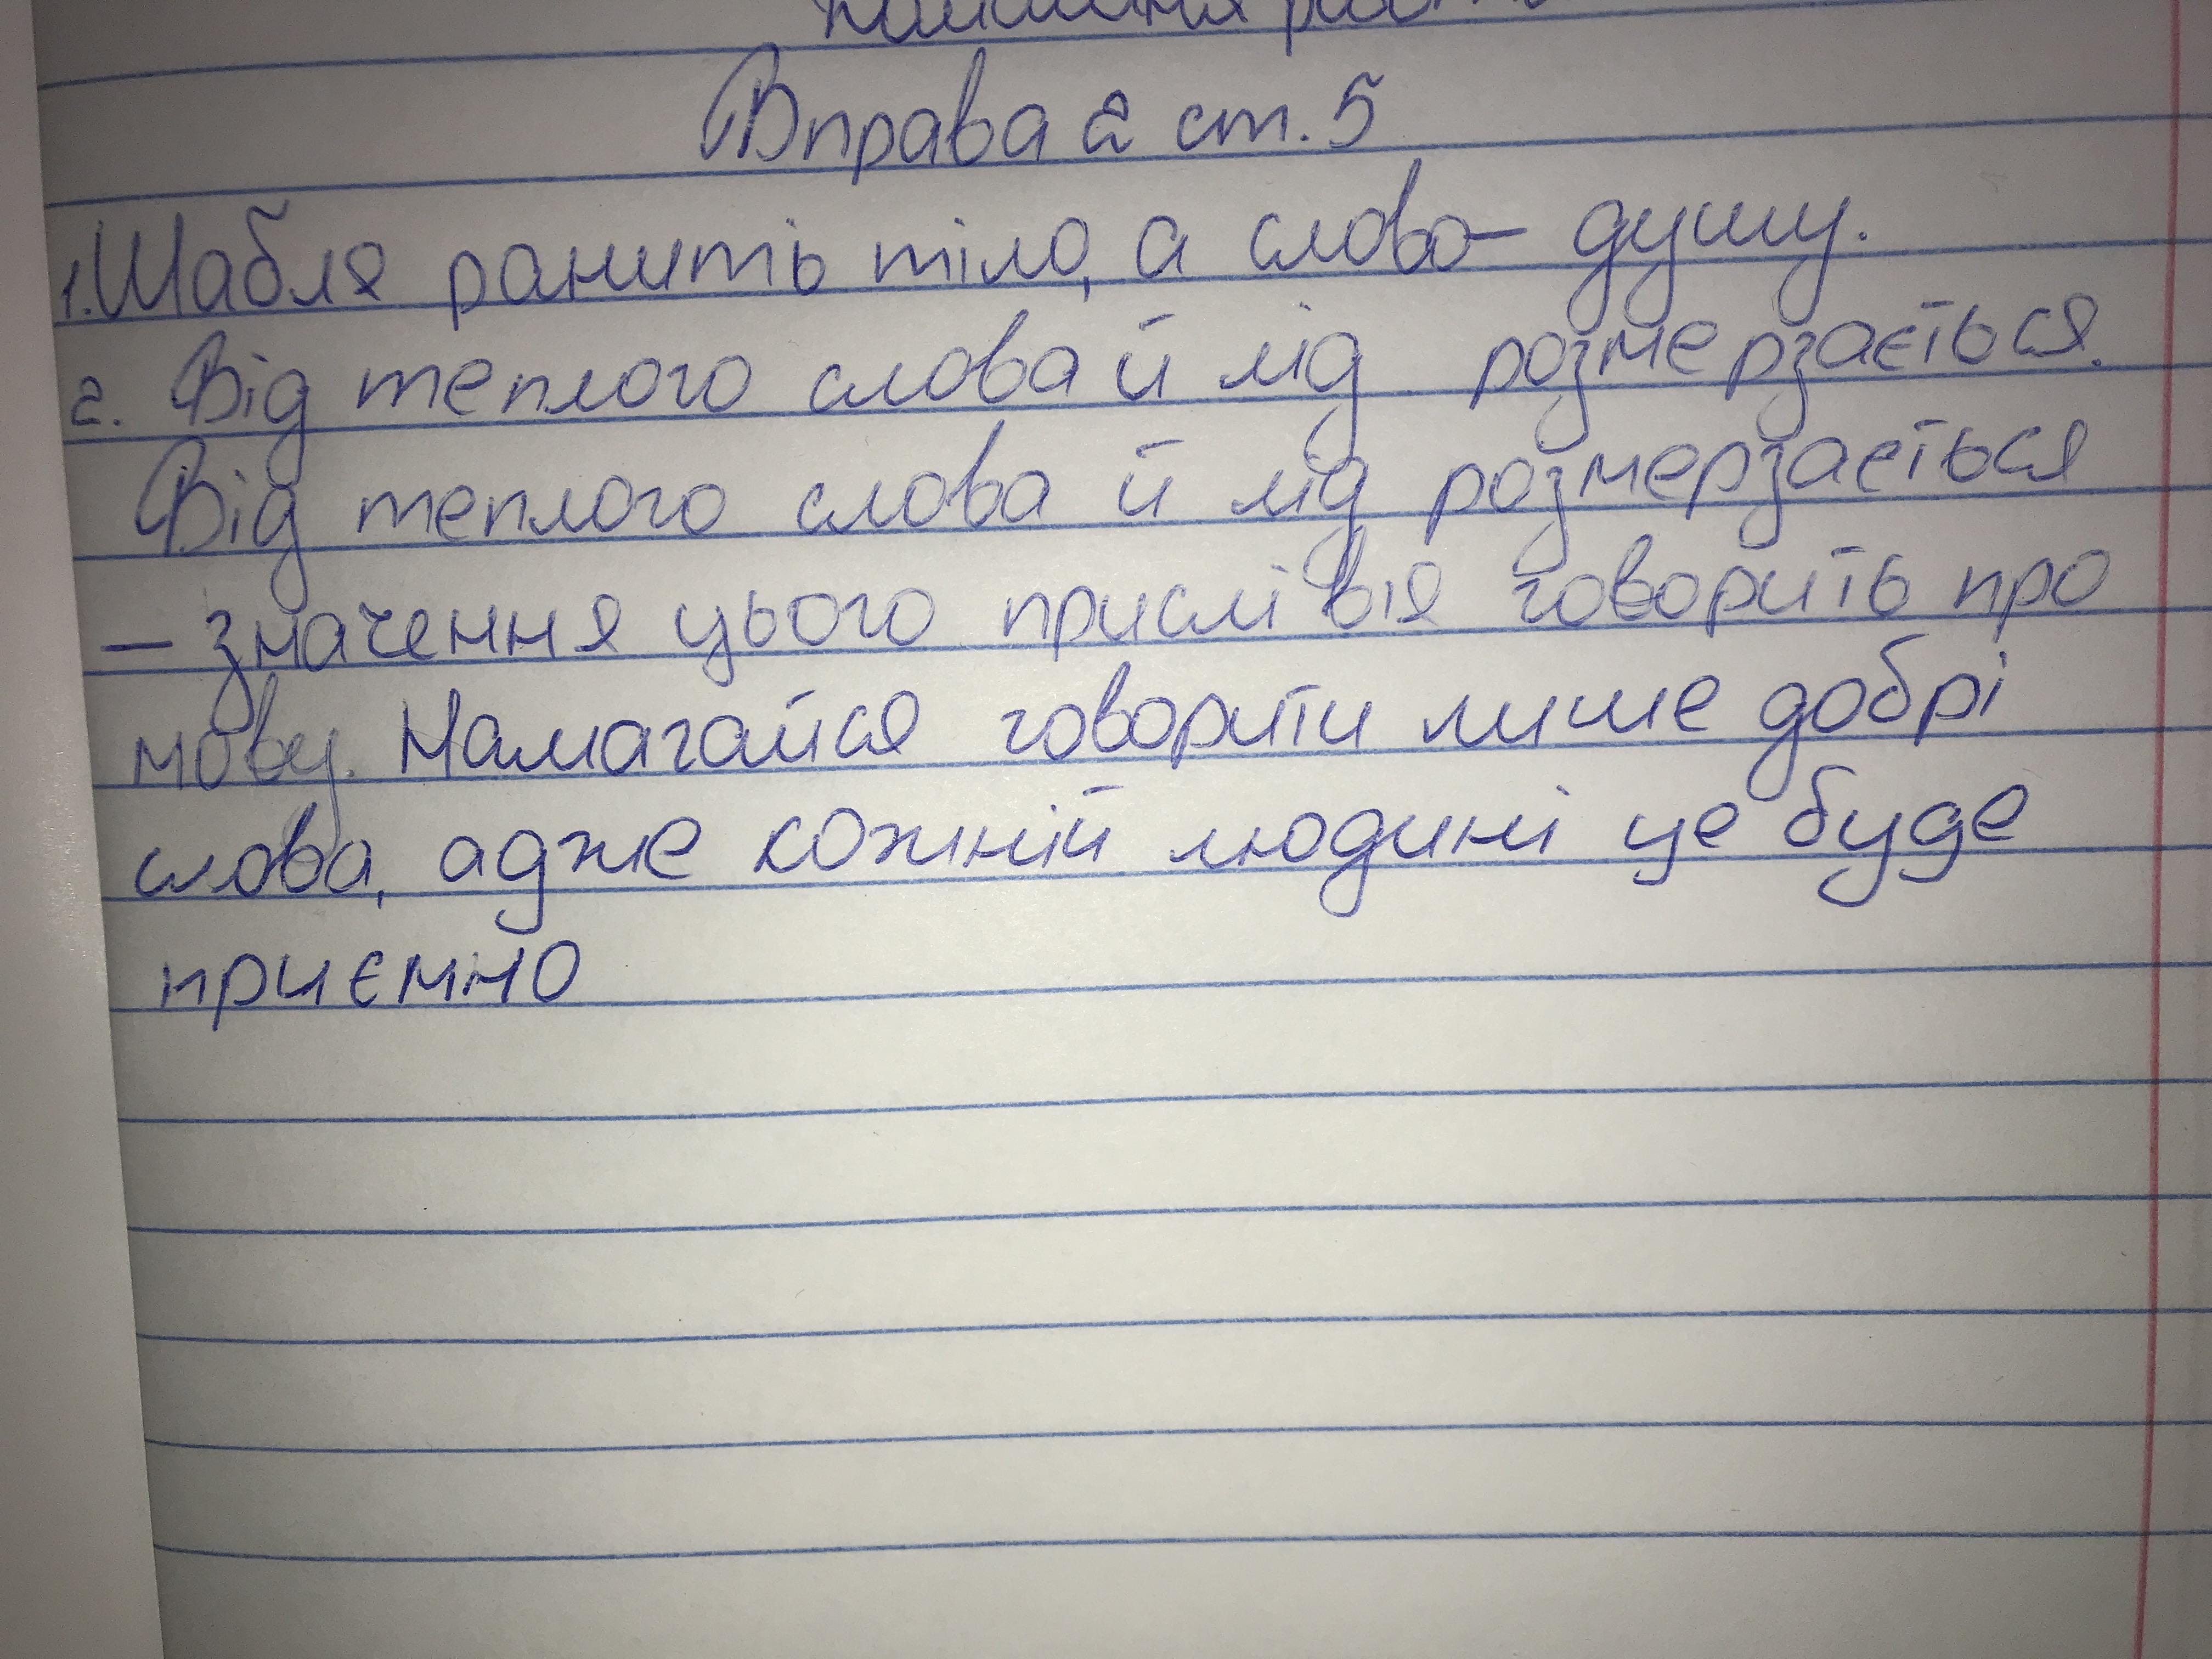 Вправа 2 ст. 5
1. Шабля ранить тіло, а слово – душу.
2. Від теплого слова й лід розмерзається.
Від теплого слова й лід розмерзається
– значення цього прислівія говорить про
мову. Намагайся говорити лише добрі
слова, адже кожній людині це буде
приємно